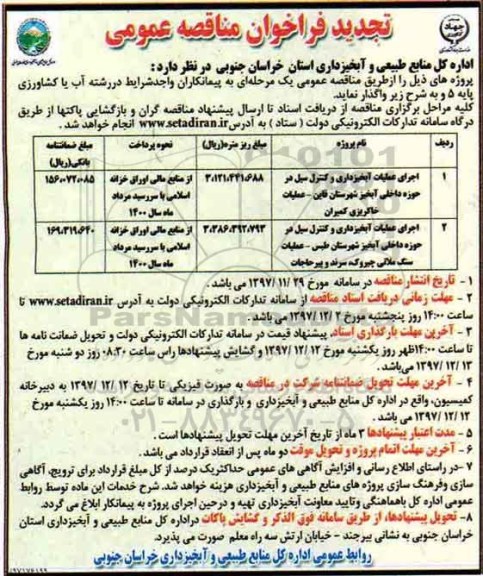 تجدید فراخوان مناقصه عمومی
اداره کل منابع طبیعی و آبخیزداری استان خراسان جنوبی در نظر دارد :
پروژه های ذیل را ازطریق مناقصه عمومی یک مرحله‌ای به پیمانکاران واجدشرایط دررشته آب یا کشاورزی
پایه ۵ و به شرح زیر واگذار نماید.
کلیه مراحل برگزاری مناقصه از دریافت اسناد تا ارسال پیشنهاد مناقصه گران و بازگشایی پاکتها از طریق
درگاه سامانه تدارکات الکترونیکی دولت ( ستاد ) به آدرس www.setadiran.ir انجام خواهد شد .
ردیف نام پروژه مبلغ ریز متره(ریال) نحوه پرداخت مبلغ ضمانتنامه بانکی(ریال)
۱ اجرای عملیات آبخیزداری و کنترل سیل در حوزه داخلی آبخیز شهرستان قاین - عملیات خاکریزی کمیران ۳،۱۲۱،۴۴۱،۶۸۸ از منابع مالی اوراق خزانه اسلامی با سررسید مرداد ماه سال ۱۴۰۰ ۱۵۶،۰۷۲،۰۸۵
۲ اجرای عملیات آبخیزداری و کنترل سیل در حوزه داخلی آبخیز شهرستان طبس - عملیات سنگ ملاتی چیروک، سرند و پیرحاجات ۳،۳۸۶،۳۹۲،۷۹۳ از منابع مالی اوراق خزانه اسلامی با سررسید مرداد ماه سال ۱۴۰۰ ۱۶۹،۳۱۹،۶۴۰
۱ - تاریخ انتشار مناقصه در سامانه مورخ ۲۹ /۱۱ /۱۳۹۷ می باشد .
۲ - مهلت زمانی دریافت اسناد مناقصه از سامانه تدارکات الکترونیکی دولت به آدرس www.setadiran.ir تا
ساعت ۱۴:۰۰ روز پنجشنبه مورخ ۲ /۱۲ /۱۳۹۷ می باشد .
۳ - آخرین مهلت بارگذاری اسناد، پیشنهاد قیمت در سامانه تدارکات الکترونیکی دولت و تحویل ضمانت نامه ها
تا ساعت ۱۴:۰۰ظهر روز یکشنبه مورخ ۱۲ /۱۲ /۱۳۹۷ و گشایش پیشنهادها راس ساعت ۰۸:۳۰ روز دو شنبه مورخ
۱۳ /۱۲ /۱۳۹۷ می باشد.
۴ - آخرین مهلت تحویل ضمانتنامه شرکت در مناقصه به صورت فیزیکی تا تاریخ ۱۲ /۱۲ /۱۳۹۷ به دبیرخانه
کمیسیون، واقع در اداره کل منابع طبیعی و آبخیزداری و بارگذاری در سامانه تا ساعت ۱۴:۰۰ روز یکشنبه مورخ
۱۲ /۱۲ /۱۳۹۷ می باشد .
۵ - مدت اعتبار پیشنهادها ۳ ماه از تاریخ آخرین مهلت تحویل پیشنهادها است .
۶ - آخرین مهلت اتمام پروژه و تحویل موقت دو ماه پس از انعقاد قرارداد می باشد.
۷ -در راستای اطلاع رسانی و افزایش آگاهی های عمومی حداکثریک درصد از کل مبلغ قرارداد برای ترویج، آگاهی
سازی وفرهنگ سازی پروژه های منابع طبیعی و آبخیزداری هزینه خواهد شد. شرح خدمات این ماده توسط روابط
عمومی اداره کل باهماهنگی وتایید معاونت آبخیزداری تهیه و درحین اجرای پروژه به پیمانکار ابلاغ می گردد.
۸- تحویل پیشنهادها، از طریق سامانه فوق الذکر و گشایش پاکات دراداره کل منابع طبیعی و آبخیزداری استان
خراسان جنوبی به نشانی بیرجند - خیابان ارتش سه راه معلم صورت می پذیرد.
روابط عمومی اداره کل منابع طبیعی و آبخیزداری خراسان جنوبی